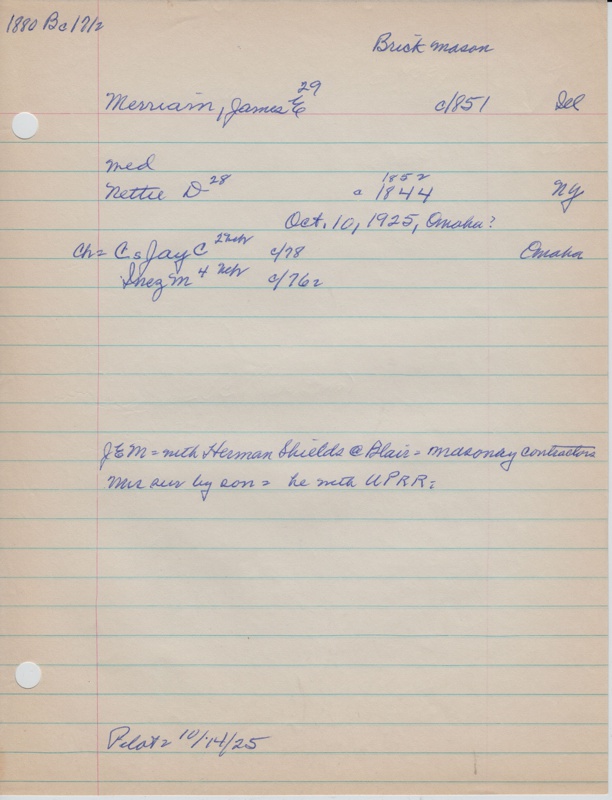 1880 Bc 17/2
Brick mason
Merriam, James E 29 c/851 Del
med
Nettie D 28 c 1852 1844 NY
Oct. 10, 1925, Omaha?
Ch = C s Jay C 2 Nebr c/78 Omaha
Inez M 4 Nebr c/762
JEM = with Herman Shields @ Blair = masonry contractors
Mrs sur by son = he with UPRR =
Pilot = 10/14/25